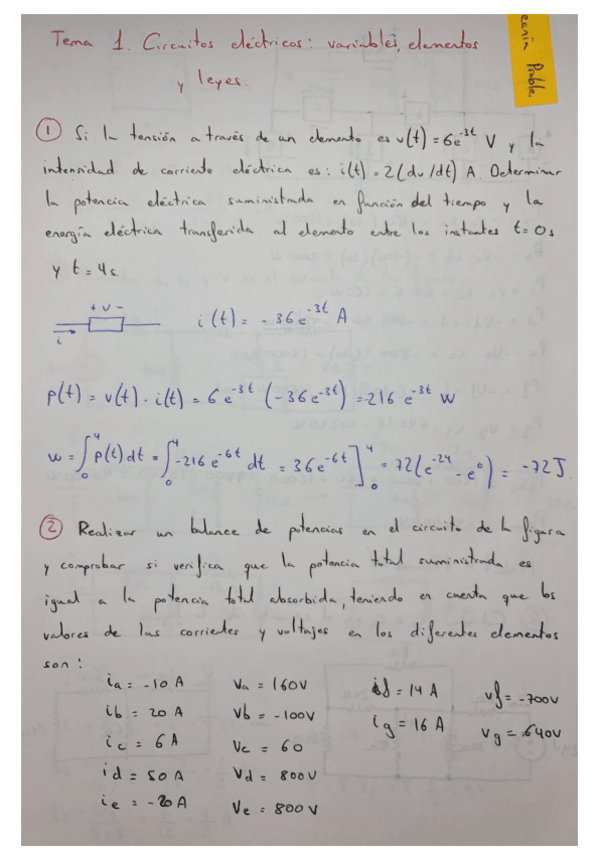 Tema 1. Circuitos eléctricos: variables, elementos
y leyes.
Proble.
① Si la tensión a través de un elemento es v(t) = 6e^-3t V y la
intensidad de corriente eléctrica es: i(t) = 2(dv/dt) A. Determinar
la potencia eléctrica suministrada en función del tiempo y la
energía eléctrica transferida al elemento entre los instantes t = 0s
y t = 4s.
+ v -
i
i(t) = -36e^-3t A
p(t) = v(t) · i(t) = 6e^-3t (-36e^-3t) = -216 e^-3t W
w = ∫₀⁴ p(t)dt = ∫₀⁴ -216e^-6t dt = 36e^-6t ]₀⁴ = 72(e^-24 - e^0) = -72 J.
② Realizar un balance de potencias en el circuito de la figura
y comprobar si verifica que la potencia total suministrada es
igual a la potencia total absorbida, teniendo en cuenta que los
valores de las corrientes y voltajes en los diferentes elementos
son:
ia = -10 A Va = 160V if = 14 A vf = -700V
ib = 20 A Vb = -100V ig = 16 A Vg = 640V
ic = 6 A Vc = 60
id = 50 A Vd = 800V
ie = -20 A Ve = 800 V